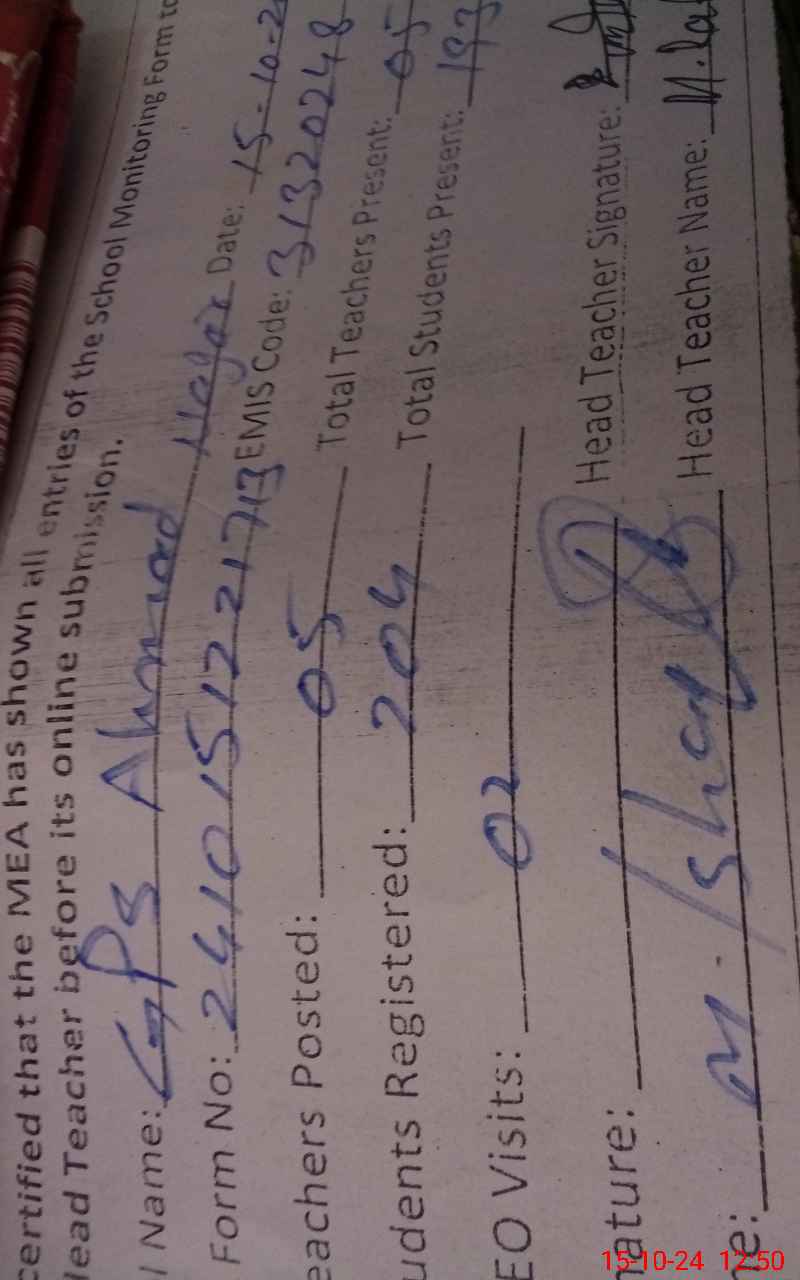 certified that the MEA has shown all entries of the School Monitoring Form to
lead Teacher before its online submission.
l Name: GPS Ahmad Nagar Date: 15-10-2
Form No: 2410151221713 EMIS Code: 31320248
eachers Posted: 05 Total Teachers Present: 05
udents Registered: 204 Total Students Present: 193
EO Visits: 02
nature: Head Teacher Signature:
me: M. Ishaq Head Teacher Name: M.
15-10-24 12:50